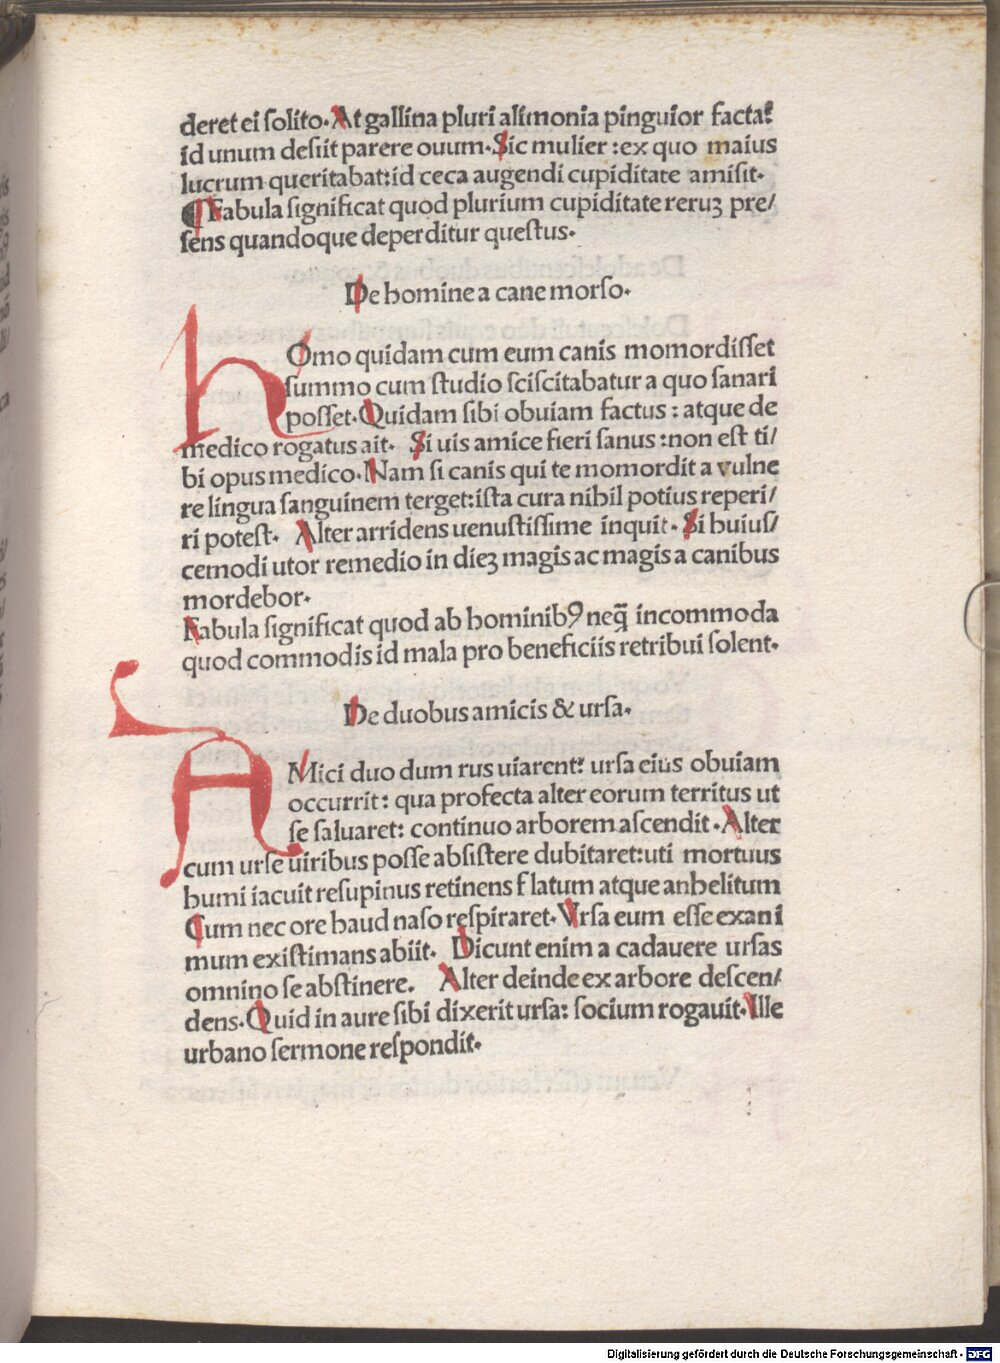 deret ei ſolito. At gallina pluri alimonia pinguior facta:
id unum deſiit parere ouum. Sic mulier: ex quo maius
lucrum queritabat: id ceca augendi cupiditate amiſit.
¶ Fabula ſignificat quod plurium cupiditate reruꝫ pre/
ſens quandoque deperditur queſtus.
De homine a cane morſo.
HOmo quidam cum eum canis momordiſſet
ſummo cum ſtudio ſciſcitabatur a quo ſanari
poſſet. Quidam ſibi obuiam factus: atque de
medico rogatus ait. Si uis amice fieri ſanus: non eſt ti/
bi opus medico. Nam ſi canis qui te momordit a vulne
re lingua ſanguinem terget: iſta cura nihil potius reperi/
ri poteſt. Alter arridens uenuſtiſſime inquit. Si huiuſ/
cemodi utor remedio in dieꝫ magis ac magis a canibus
mordebor.
Fabula ſignificat quod ab hominibꝰ neq̃ incommoda
quod commodis id mala pro beneficiis retribui ſolent.
De duobus amicis & urſa.
AMici duo dum rus uiarent: urſa eius obuiam
occurrit: qua profecta alter eorum territus ut
ſe ſaluaret: continuo arborem aſcendit. Alter
cum urſe uiribus poſſe abſiſtere dubitaret: uti mortuus
humi iacuit reſupinus retinens flatum atque anhelitum
Cum nec ore haud naſo reſpiraret. Vrſa eum eſſe exani
mum exiſtimans abiit. Dicunt enim a cadauere urſas
omnino ſe abſtinere. Alter deinde ex arbore deſcen/
dens. Quid in aure ſibi dixerit urſa: ſocium rogauit. Ille
urbano ſermone reſpondit.
Digitalisierung gefördert durch die Deutsche Forschungsgemeinschaft - DFG